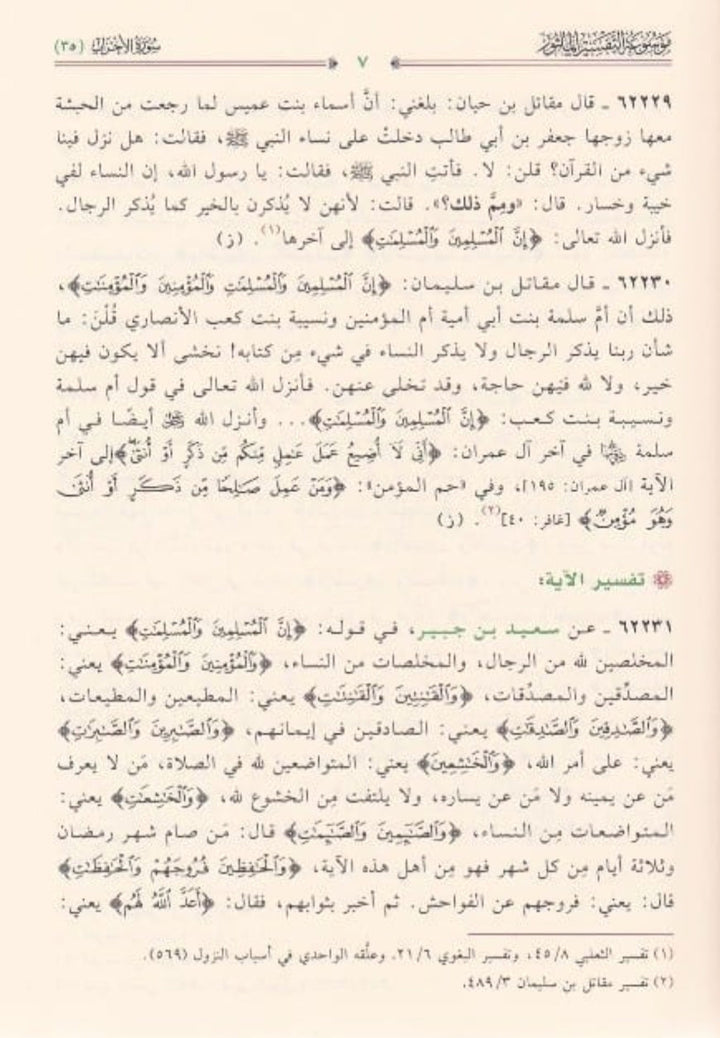 موسوعة التفسير المأثور
٧
سورة الأحزاب (٣٥)
٦٢٢٢٩ ـ قال مقاتل بن حيان: بلغني: أنَّ أسماء بنت عميس لما رجعت من الحبشة
معها زوجها جعفر بن أبي طالب دخلتْ على نساء النبي ﷺ، فقالت: هل نزل فينا
شيء من القرآن؟ قلن: لا. فأتتِ النبي ﷺ، فقالت: يا رسول الله، إن النساء لفي
خيبة وخسار. قال: «ومِمَّ ذلك؟». قالت: لأنهن لا يُذكرن بالخير كما يُذكر الرجال.
فأنزل الله تعالى: ﴿إِنَّ ٱلْمُسْلِمِينَ وَٱلْمُسْلِمَٰتِ﴾ إلى آخرها(١). (ز)
٦٢٢٣٠ ـ قال مقاتل بن سليمان: ﴿إِنَّ ٱلْمُسْلِمِينَ وَٱلْمُسْلِمَٰتِ وَٱلْمُؤْمِنِينَ وَٱلْمُؤْمِنَٰتِ﴾،
ذلك أن أمَّ سلمة بنت أبي أمية أم المؤمنين ونسيبة بنت كعب الأنصاري قُلْنَ: ما
شأن ربنا يذكر الرجال ولا يذكر النساء في شيء مِن كتابه! نخشى ألا يكون فيهن
خير، ولا لله فيهن حاجة، وقد تخلى عنهن. فأنزل الله تعالى في قول أم سلمة
ونسيبة بنت كعب: ﴿إِنَّ ٱلْمُسْلِمِينَ وَٱلْمُسْلِمَٰتِ﴾... وأنزل الله ﷻ أيضًا في أم
سلمة رضي الله عنها في آخر آل عمران: ﴿أَنِّى لَآ أُضِيعُ عَمَلَ عَٰمِلٍ مِّنكُم مِّن ذَكَرٍ أَوْ أُنثَىٰ﴾ إلى آخر
الآية [آل عمران: ١٩٥]، وفي «حم المؤمن»: ﴿وَمَنْ عَمِلَ صَٰلِحًا مِّن ذَكَرٍ أَوْ أُنثَىٰ
وَهُوَ مُؤْمِنٌ﴾ [غافر: ٤٠](٢). (ز)
تفسير الآية:
٦٢٢٣١ ـ عن سعيد بن جبير، في قوله: ﴿إِنَّ ٱلْمُسْلِمِينَ وَٱلْمُسْلِمَٰتِ﴾ يعني:
المخلصين لله من الرجال، والمخلصات من النساء، ﴿وَٱلْمُؤْمِنِينَ وَٱلْمُؤْمِنَٰتِ﴾ يعني:
المصدِّقين والمصدِّقات، ﴿وَٱلْقَٰنِتِينَ وَٱلْقَٰنِتَٰتِ﴾ يعني: المطيعين والمطيعات،
﴿وَٱلصَّٰدِقِينَ وَٱلصَّٰدِقَٰتِ﴾ يعني: الصادقين في إيمانهم، ﴿وَٱلصَّٰبِرِينَ وَٱلصَّٰبِرَٰتِ﴾
يعني: على أمر الله، ﴿وَٱلْخَٰشِعِينَ﴾ يعني: المتواضعين لله في الصلاة، مَن لا يعرف
مَن عن يمينه ولا مَن عن يساره، ولا يلتفت مِن الخشوع لله، ﴿وَٱلْخَٰشِعَٰتِ﴾ يعني:
المتواضعات مِن النساء، ﴿وَٱلصَّٰٓئِمِينَ وَٱلصَّٰٓئِمَٰتِ﴾ قال: مَن صام شهر رمضان
وثلاثة أيام مِن كل شهر فهو مِن أهل هذه الآية، ﴿وَٱلْحَٰفِظِينَ فُرُوجَهُمْ وَٱلْحَٰفِظَٰتِ﴾
قال: يعني: فروجهم عن الفواحش. ثم أخبر بثوابهم، فقال: ﴿أَعَدَّ ٱللَّهُ لَهُم﴾ يعني:
(١) تفسير الثعلبي ٤٥/٨، وتفسير البغوي ٢١/٦. وعلَّقه الواحدي في أسباب النزول (٥٦٩).
(٢) تفسير مقاتل بن سليمان ٤٨٩/٣.